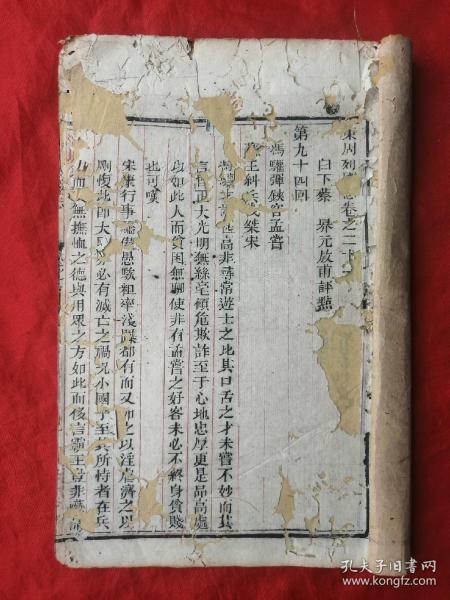 東周列 卷之二十
白下蔡 昇元放甫評點
第九十四回
馮驩彈鋏客孟嘗
王糾兵伐桀宋
高非尋常遊士之比其口舌之才未嘗不妙而其
言正大光明無絲毫傾危欺詐至于心地忠厚更是高高處
以如此人而貧困無聊使非有孟嘗之好客未必不終身貧賤
也可嘆
宋康行事 愚騃粗率淺 都有而又 之以淫虐濟之以
此 大 必有滅亡之禍况小國乎至其所恃者在兵
而 無撫恤之德與用眾之方如此而後言霸王豈非
孔夫子旧书网
www.kongfz.com